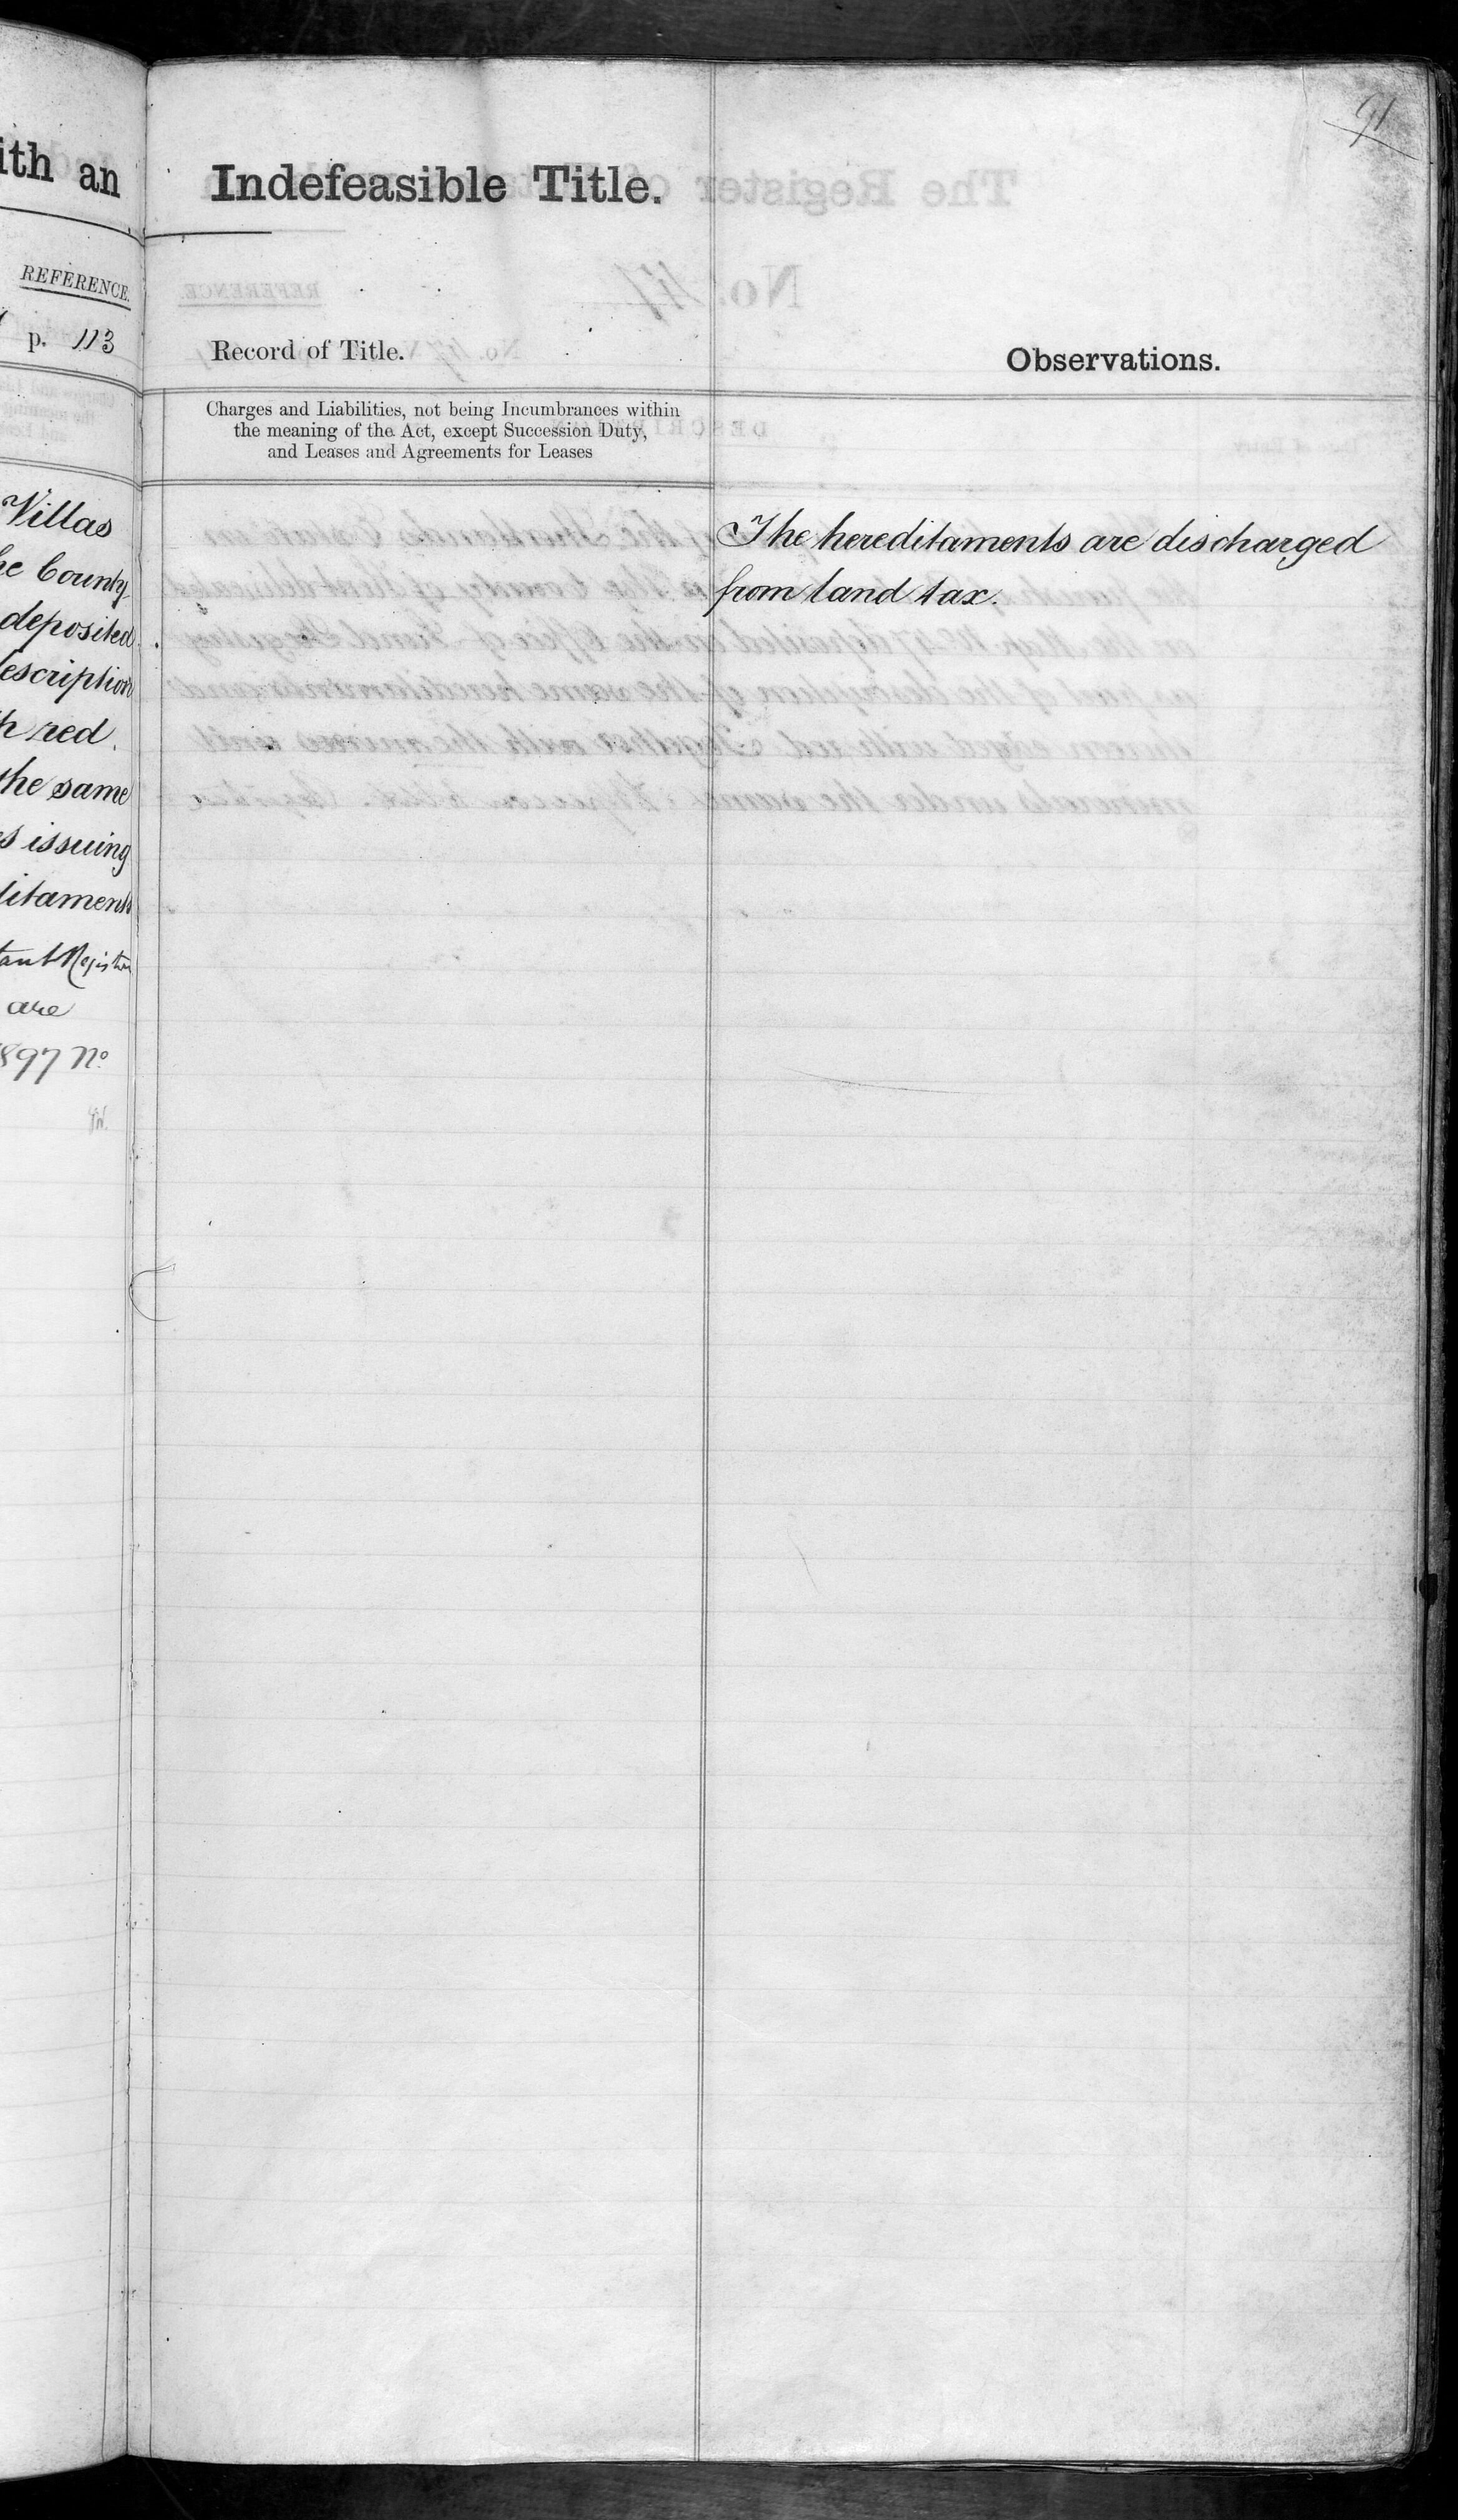 ith an
REFERENCE.
p. 113
Villas
he County
deposited
escription
h red.
the same
s issuing
ditaments
tant Registrar
are
1897 No
91
Indefeasible Title.
Record of Title.
Observations.
Charges and Liabilities, not being Incumbrances within
the meaning of the Act, except Succession Duty,
and Leases and Agreements for Leases
The hereditaments are discharged
from land tax.